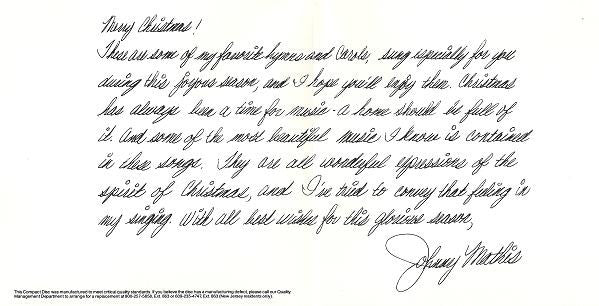 Merry Christmas!
These are some of my favorite hymns and carols, sung especially for you
during this joyous season, and I hope you'll enjoy them. Christmas
has always been a time for music - a home should be full of
it. And some of the most beautiful music I know is contained
in these songs. They are all wonderful expressions of the
spirit of Christmas, and I've tried to convey that feeling in
my singing. With all best wishes for this glorious season,
Johnny Mathis
This Compact Disc was manufactured to meet critical quality standards. If you believe the disc has a manufacturing defect, please call our Quality
Management Department to arrange for a replacement at 800-257-5858, Ext. 663 or 609-235-4747, Ext. 663 (New Jersey residents only).